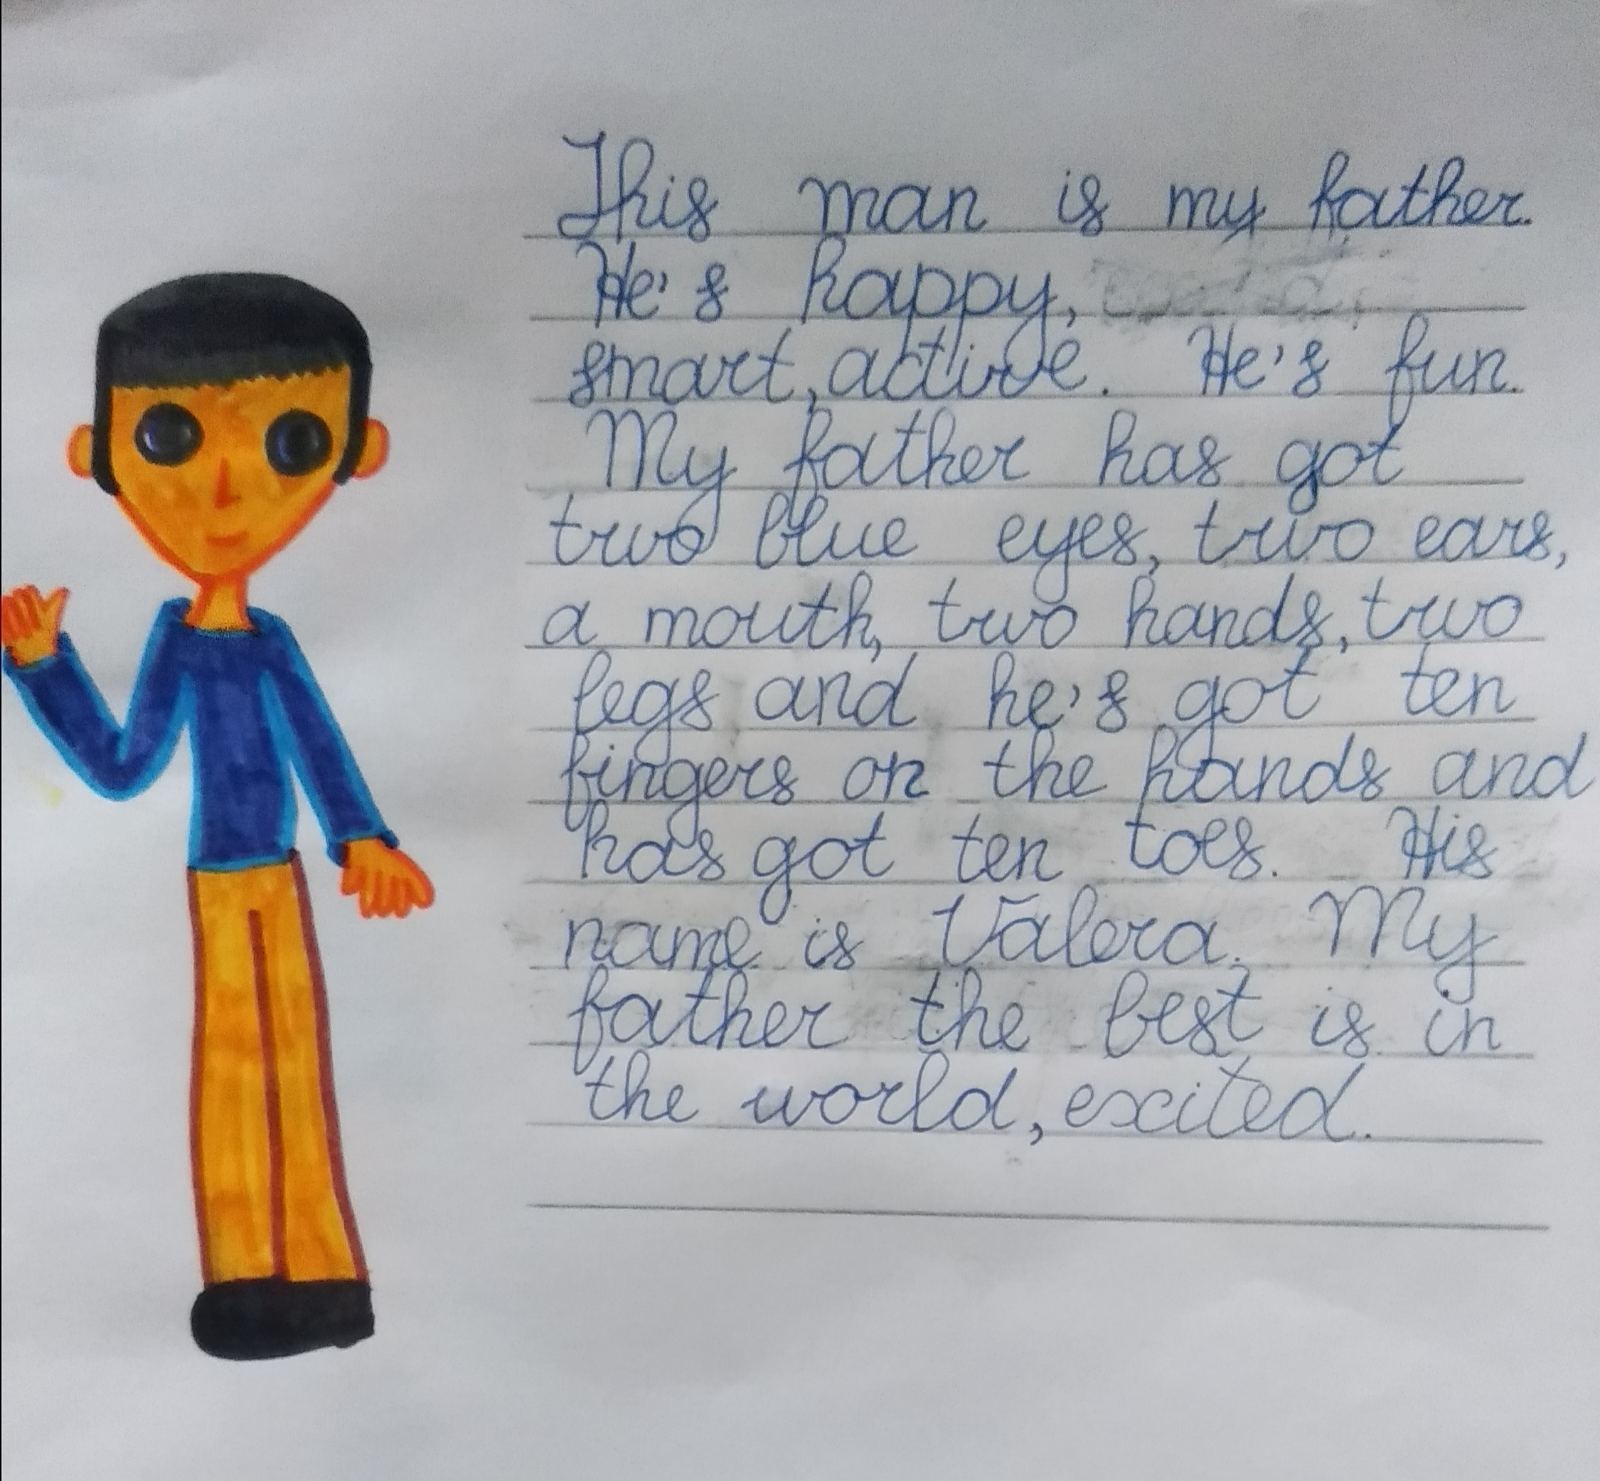 This man is my father.
He's happy,
smart, active. He's fun.
My father has got
two blue eyes, two ears,
a mouth, two hands, two
legs and he's got ten
fingers on the hands and
has got ten toes. His
name is Valera. My
father the best is in
the world, excited.